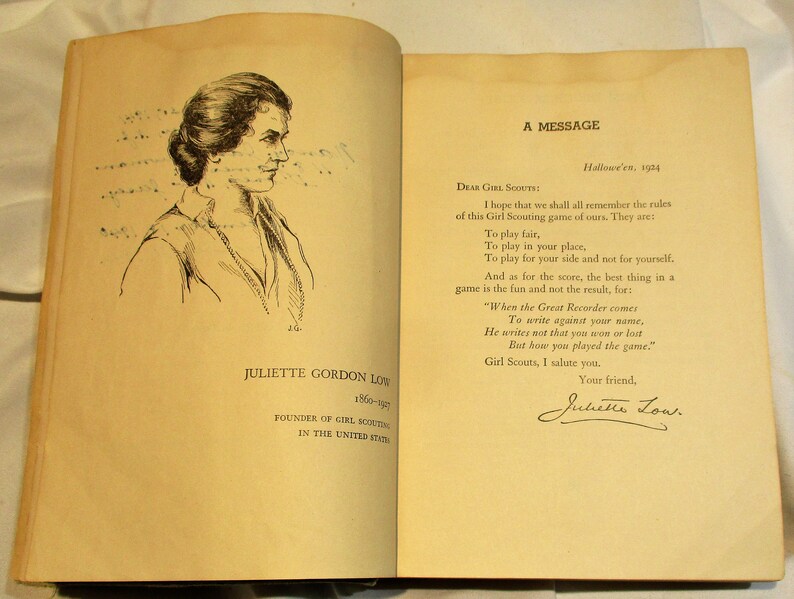 J.G.
JULIETTE GORDON LOW
1860–1927
FOUNDER OF GIRL SCOUTING
IN THE UNITED STATES
A MESSAGE
Hallowe'en, 1924
DEAR GIRL SCOUTS:
I hope that we shall all remember the rules
of this Girl Scouting game of ours. They are:
To play fair,
To play in your place,
To play for your side and not for yourself.
And as for the score, the best thing in a
game is the fun and not the result, for:
"When the Great Recorder comes
To write against your name,
He writes not that you won or lost
But how you played the game."
Girl Scouts, I salute you.
Your friend,
Juliette Low.